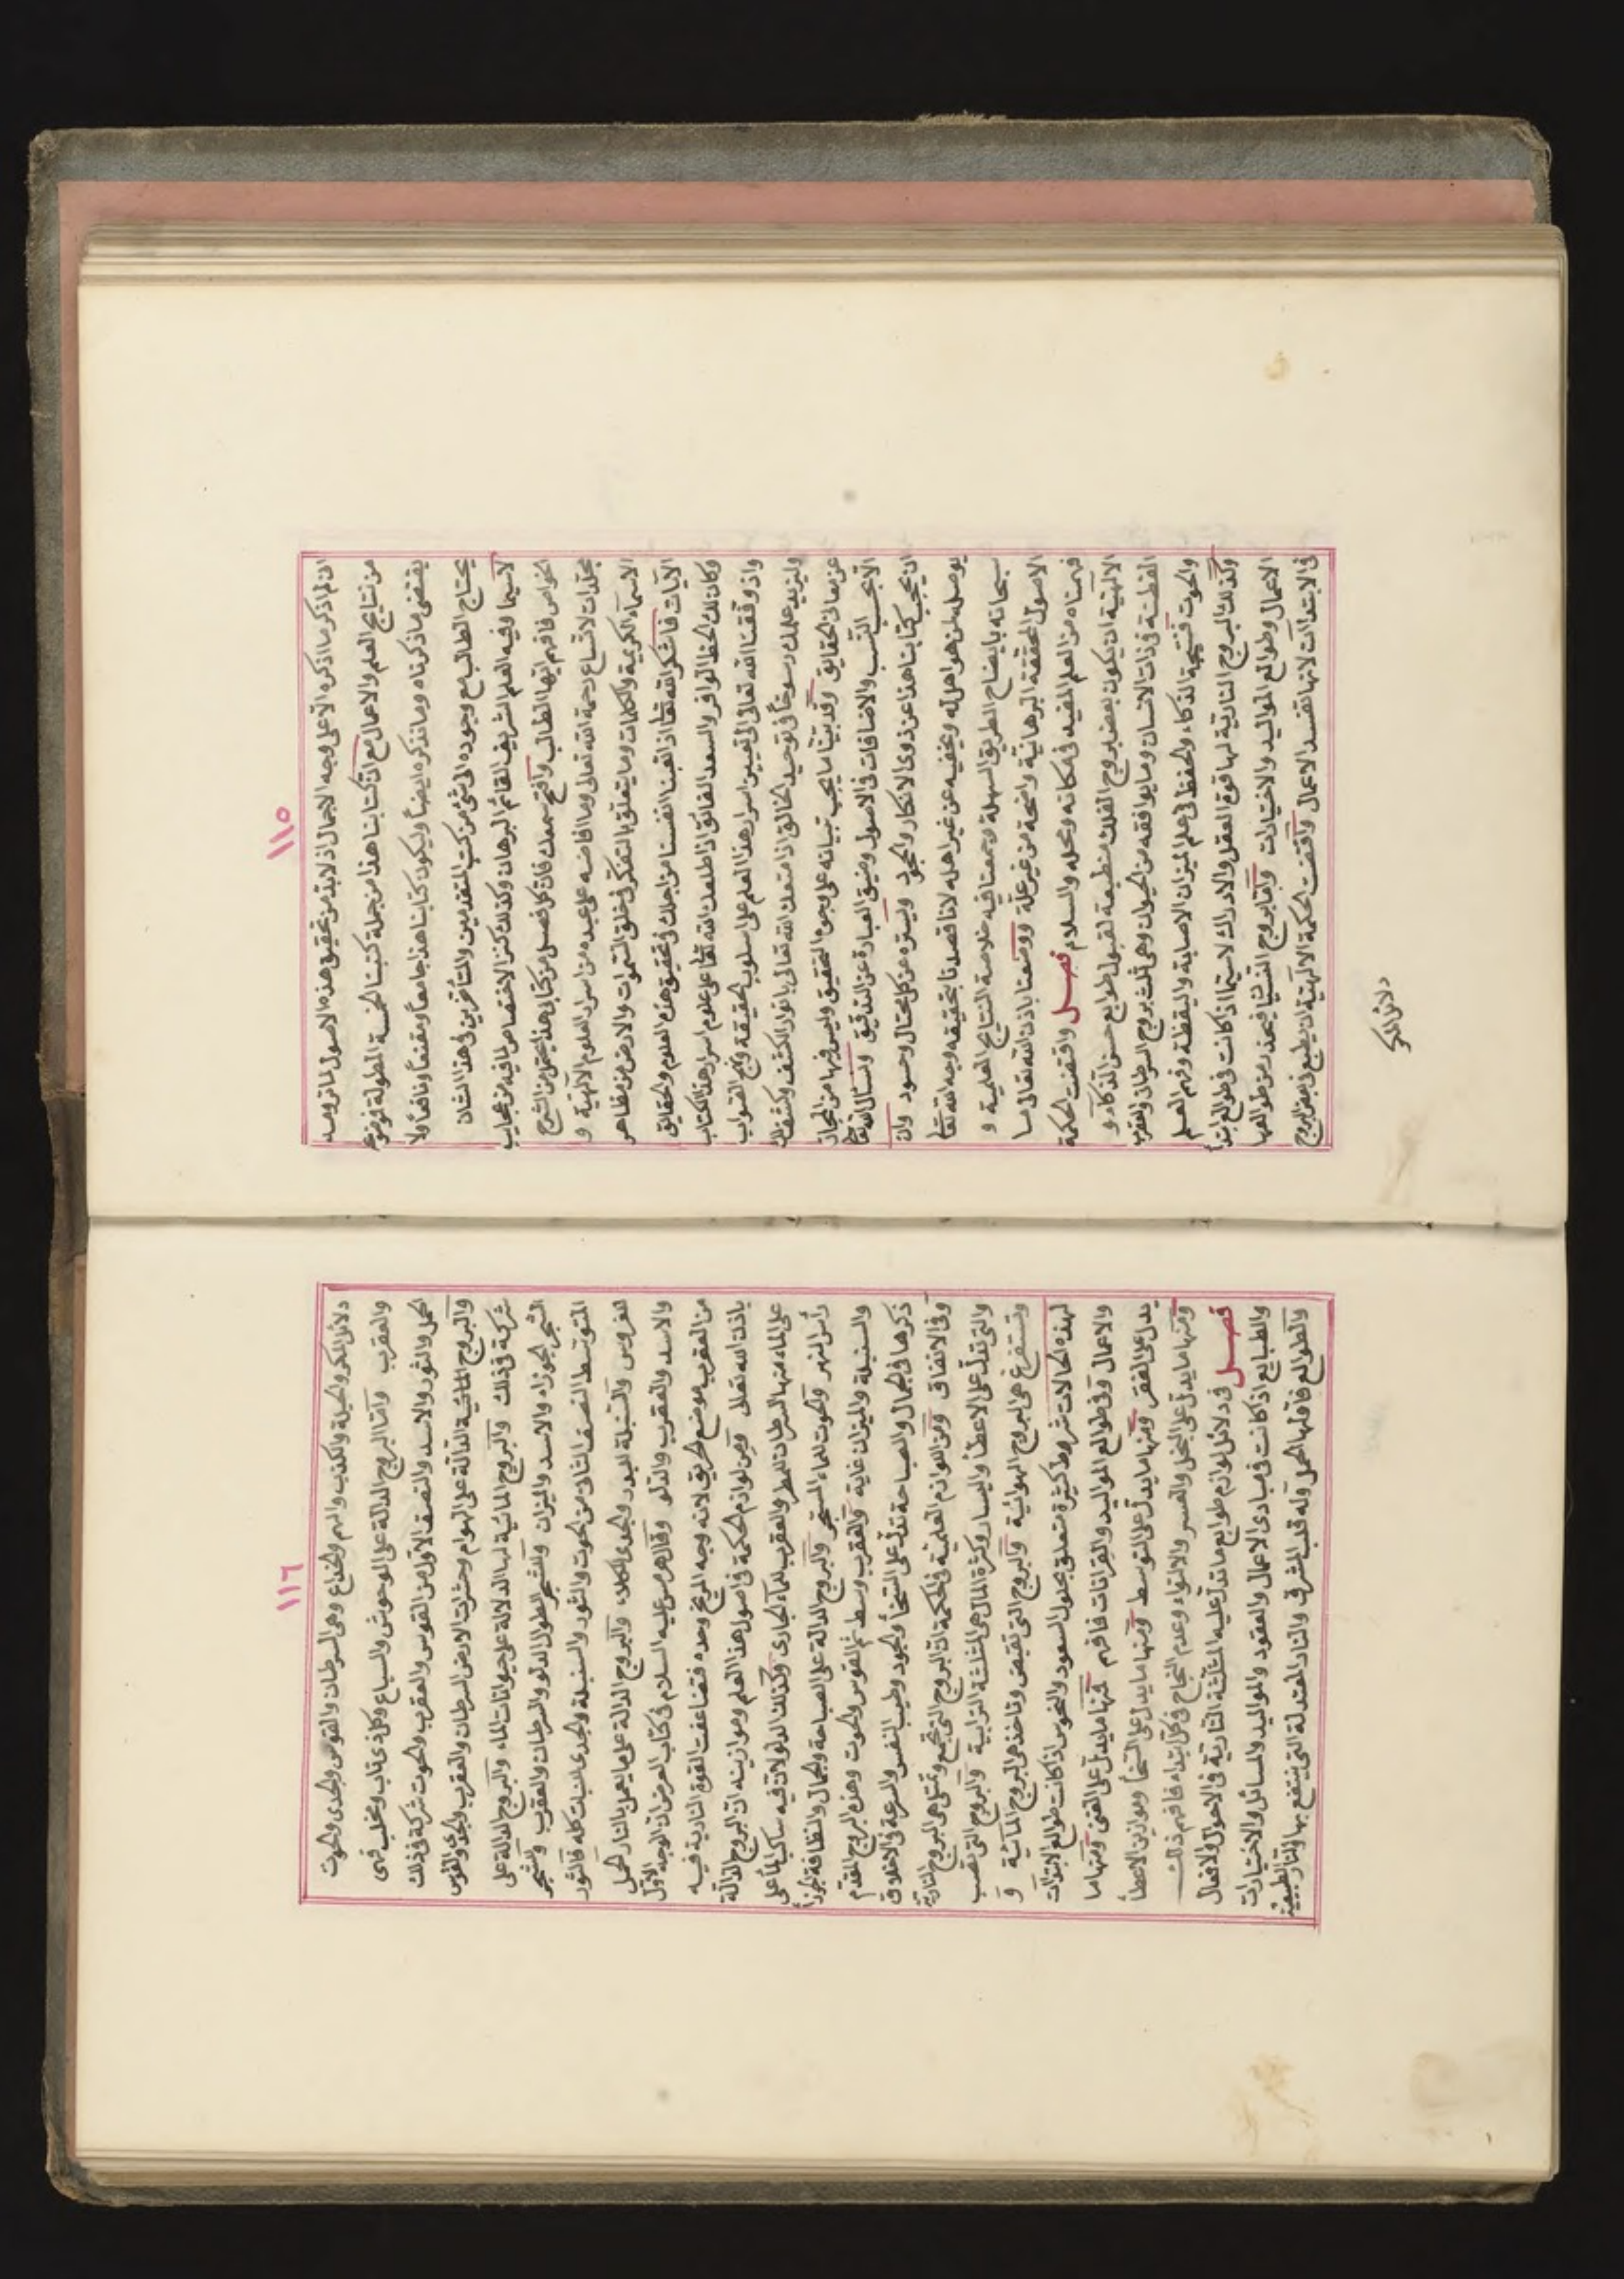 ١١٥
ان لم اذكر ما اذكره الا على وجه الاجمال اذ لا بد من تحقيق هذه الاصول لما ترومه
من نتايج العلم والاعمال مع ان كتابنا هذا من جملة كتبنا الخمسة المطولة فوضوعه
يقتضى ما ذكرناه وما نذكره ايضاً وليكون كتابنا هذا جامعاً ومقنعاً ونافعاً ولا
يحتاج الطالب مع وجوده الى شئ من كتب المتقدمين والمتأخرين فى هذا الشان
لاسيما وفيه العلم الشريف القائم البرهان وكذلك كنز الاختصاص لما فيه من عجايب
الخواص فافهم ايها الطالب وافتح سمعك فان كل فصل من كتابى هذا يحتمل من الشرح
مجلدات لاتساع رحمة الله تعالى وما افاضه على عبده من اسرار العلوم الالهية و
الاسماء الكريمة والكلمات وما يتعلق بالتفكر فى خلق السموات والارض من مظاهر
الآيات فاشكر الله تعالى اذ اتعبنا انفسنا من اجلك فى تحقيق هذه العلوم والحقايق
وكان لك الحظ الوافر والسعد الفائق اذ اطلعك الله تعالى على علوم اسرار هذا الكتاب
واذ وفقنا الله تعالى الى تعيين اسرار هذا العلم على اسلوب الحقيقة ونهج الصواب
وليزيد علمك رسوخاً فى توحيد الخالق اذا متعك الله تعالى بانوار الكشف وكشف لك
عن معانى الحقايق وقد بينا ما يجب تبيانه على وجوه التحقيق وليس فيها من المجاز
الا بحسب النسب والاضافات فى الاصول وضيق العبارة عن التدقيق ونسأل الله تعالى
ان يحجب كتابنا هذا عن ذوى الانكار والجحود ويستره عن كل محتال وحسود وان
يوصله لمن هو اهل له ويخفيه عن غير اهله لانا قصدنا بتحقيقه وجه الله تعالى
سبحانه بايضاح الطريق السهلة وجمعنا فيه خلاصة النتايج العلمية و
الاصول المحققة البرهانية واضحة من غير علة ووضعنا باذن الله تعالى ما
فهمناه من العلم المفيد فى مكانه ومحله والسلام فصل واقتضت الحكمة
الالهية ان يكون بعض بروج الفلك منطبعة لقبول طوابع حسن الذكاء و
الفطنة فى ذات الانسان وما يوافقه من الحيوان وهى ثلث بروج السرطان والعقرب
والحوت فنتيجة الذكاء والحفظ فى علم الميزان الاصابة واليقظة وفهم العلم
وكذلك البروج النارية لها قوة العقل والادراك لاسيما اذا كانت فى طوالع ابتدأ
الاعمال وطوالع المواليد والاختيارات وامّا بروج النسيان فيحذر من طوالعها
فى الابتداآت لانها تفسد الاعمال واقتضت الحكمة الالهية ان يطبع فى بعض البروج
دلائل المكر
١١٦
دلائل المكر والحيلة والكذب والهم والخداع وهى السرطان والقوس والجدى والحوت
والعقرب وامّا البروج الدالة على الوحوش والسباع وكل ذى ناب ومخلب فهى
الحمل والثور والاسد والنصف الاول من القوس والعقرب والحوت شركة فى ذلك
والبروج المائية الدالة على الهوام وحشرات الارض السرطان والعقرب والجدى والقوس
شركة فى ذلك والبروج المائية لها الدلالة على حيوانات الماء والبروج الدالة على
الشجر الجوزاء والاسد والميزان والشجر الطوال الدلو والسرطان والعقرب والشجر
المتوسط النصف الثانى من الحوت والثور والسنبلة والجدى للنبات كله فالثور
للغروس والسنبلة للبدور والجدى للكلاء والبروج الدالة على ما يعمل بالنار الحمل
والاسد والعقرب والدلو وقال هرمس عليه السلام فى كتاب العرض ان الوجه الاول
من العقرب موضع طريق لانه وجه المريخ وحده فتضاعفت القوة النارية فيه
باذن الله تعالى ومن لوازم الحكمة فى اصول هذا العلم وموازينه ان البروج الدالة
على الماء منها السرطان للمطر والعقرب للماء الجارى وكذلك الدلو لان فيه ساكب الماء على
رأس النهر والحوت للماء المستنجر والبروج الدالة على الصباحة والجمال والنظافة الجوزا
والسنبلة والميزان غاية والعقرب وسط ثم القوس والحوت وهذه البروج المقدم
ذكرها فى الجمال والصباحة تدل على السخأ والجود وطيب النفس والسرعة فى الاخلاق
وفى الانفاق ومن اللوازم العلمية فى الحكمة ان البروج التى تجمع وتمنى هى البروج النارية
والتى تدل على الاعطأ واليسار وكثرة المال هى المثلثة الترابية والبروج التى تغصب
وتستفرغ هى البروج الهوائية والبروج التى تقبض وتاخذ هى البروج المائية و
لهذه الحالات شروط كثيرة تتعلق بحلول السعود والنحوس اذا كانت طوالع الابتدآت
والاعمال وفى طوالع المواليد والقرانات فافهم فمنها ما يدل على الغنى ومنها ما
يدل على الفقر ومنها ما يدل على التوسط ومنها ما يدل على السخأ وموازين الاعطأ
ومنها ما يدل على البخل والعسر والالتواء وعدم النجاح فى كل ابتداء فافهم ذلك
فصل فى دلائل لوازم طوابع ما تدل عليه المثلثة النارية فى الاحوال والافعال
والطبايع اذا كانت فى مبادى الاعمال والعقود والمواليد والمسائل والاختيارات
والطوالع فاولها الحمل وله قلب المشرق والنار المعتدلة التى ينتفع بها والنار الطبيعية